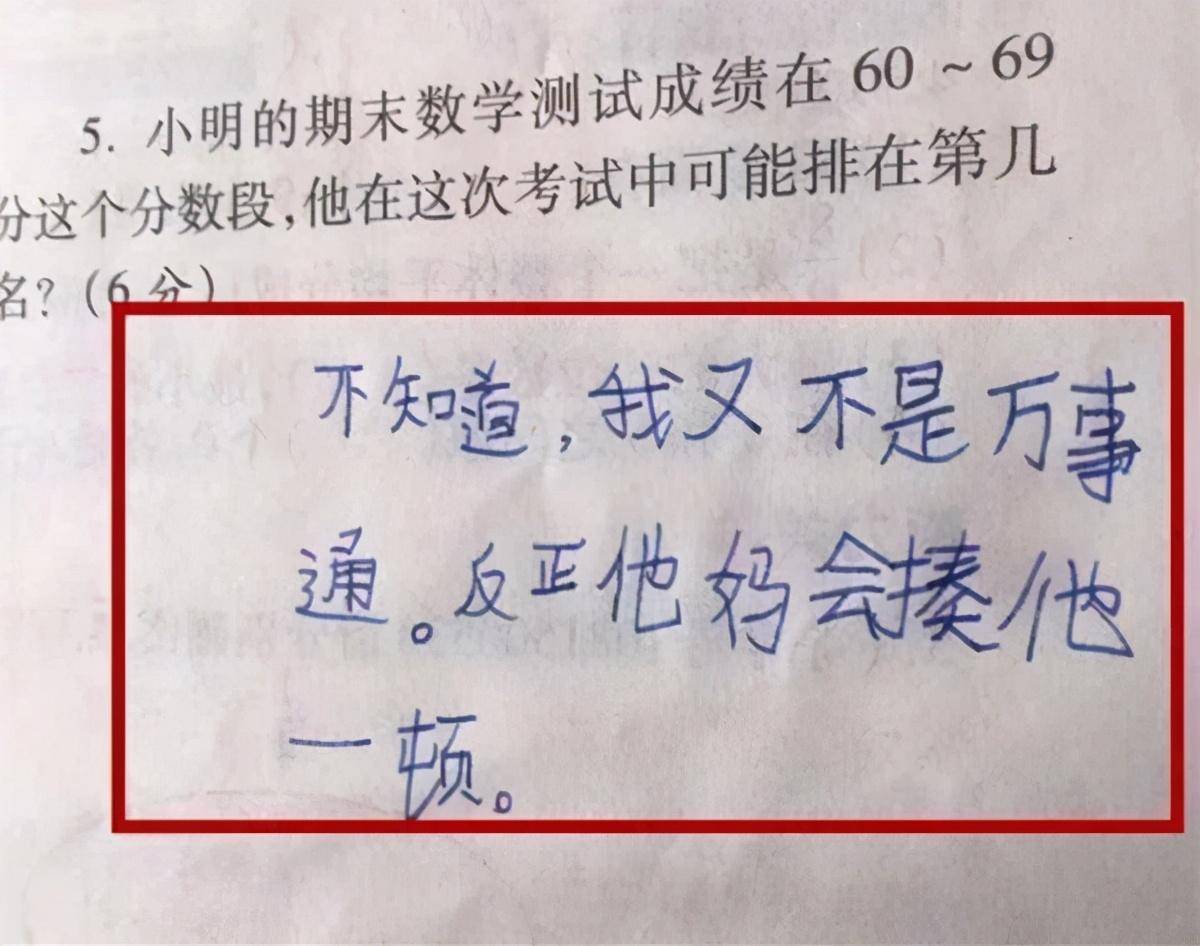 5. 小明的期末数学测试成绩在 60 ~ 69
分这个分数段,他在这次考试中可能排在第几
名?(6 分)
不知道,我又不是万事
通。反正他妈会揍他
一顿。